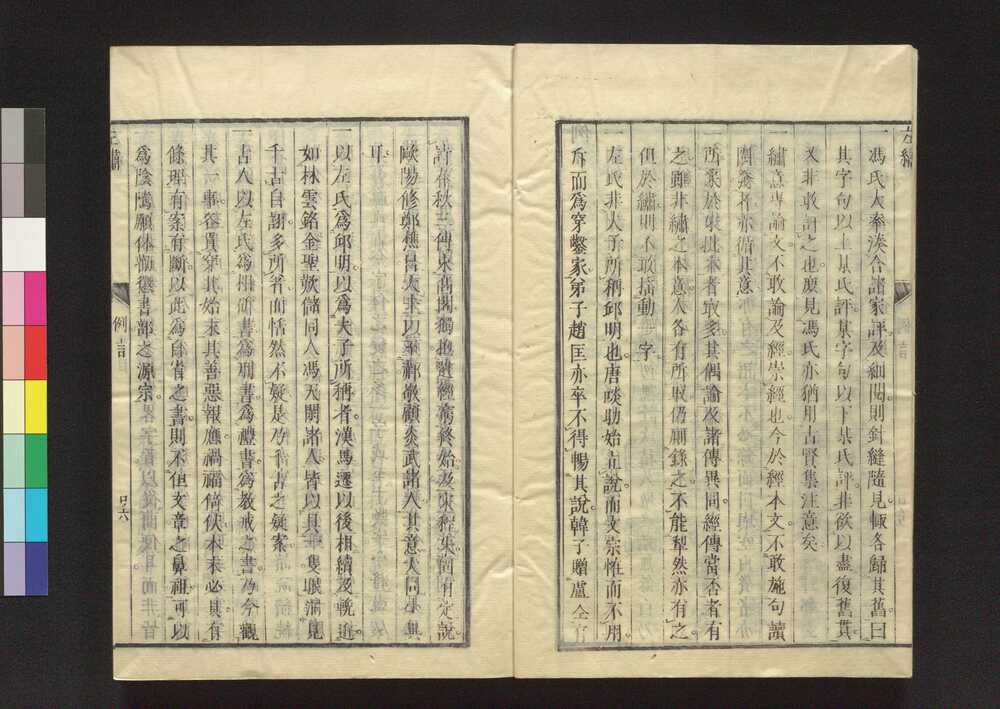 一馮氏大率湊合諸家評及細閱則針縫隨見輙各歸其舊曰
其字句以上某氏評某字句以下某氏評非欲以盡復舊貫
又非敢訶之也庶見馮氏亦猶用古賢集注意矣
一繡意專論文不敢論及經崇經也今於經本文不敢施句讀
圈亦備其意
一所於其偶論及諸傳異同經傳當否者有
之雖非繡之本意人各有所取仍廁錄之不能犁然亦有之
但於繡則不敢搖動一字
一左氏非夫子所稱邱明也唐啖助始立說而文宗惟而不用
斥而爲穿鑿家弟子趙匡亦卒不得暢其說韓子贈盧仝有
詩春秋三傳束高閣獨抱遺經究終始及宋程集有定說
歐陽修鄭樵呂大圭以郝敬顧炎武諸人其意大同小異
耳
一以左氏爲邱明以爲夫子所稱者漢馬遷以後相續及輓近
如林雲銘金聖歎儲同人馮天閑諸人皆以具一隻眼濶見
千古自誇多所著而恬然不疑是爲尙古之疑案
一古人以左氏爲相斫書爲刑書爲禮書爲敎戒之書乃今觀
其一事各貫穿其始末其善惡報應禍福倚伏本末必具有
條理有案有斷以此爲自省之書則不但文章之鼻祖可以
爲陰隲願体勸懲書部之源宗
左繡
例言
口六
左繡
例言